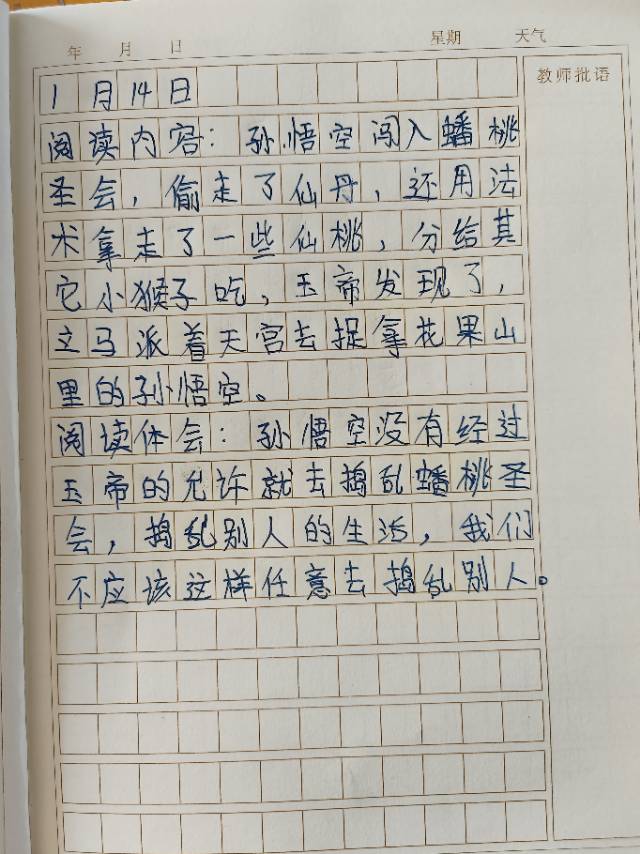 年 月 日 星期 天气
教师批语
1月14日
阅读内容：孙悟空闯入蟠桃
圣会，偷走了仙丹，还用法
术拿走了一些仙桃，分给其
它小猴子吃，玉帝发现了，
立马派着天宫去捉拿花果山
里的孙悟空。
阅读体会：孙悟空没有经过
玉帝的允许就去捣乱蟠桃圣
会，捣乱别人的生活，我们
不应该这样任意去捣乱别人。